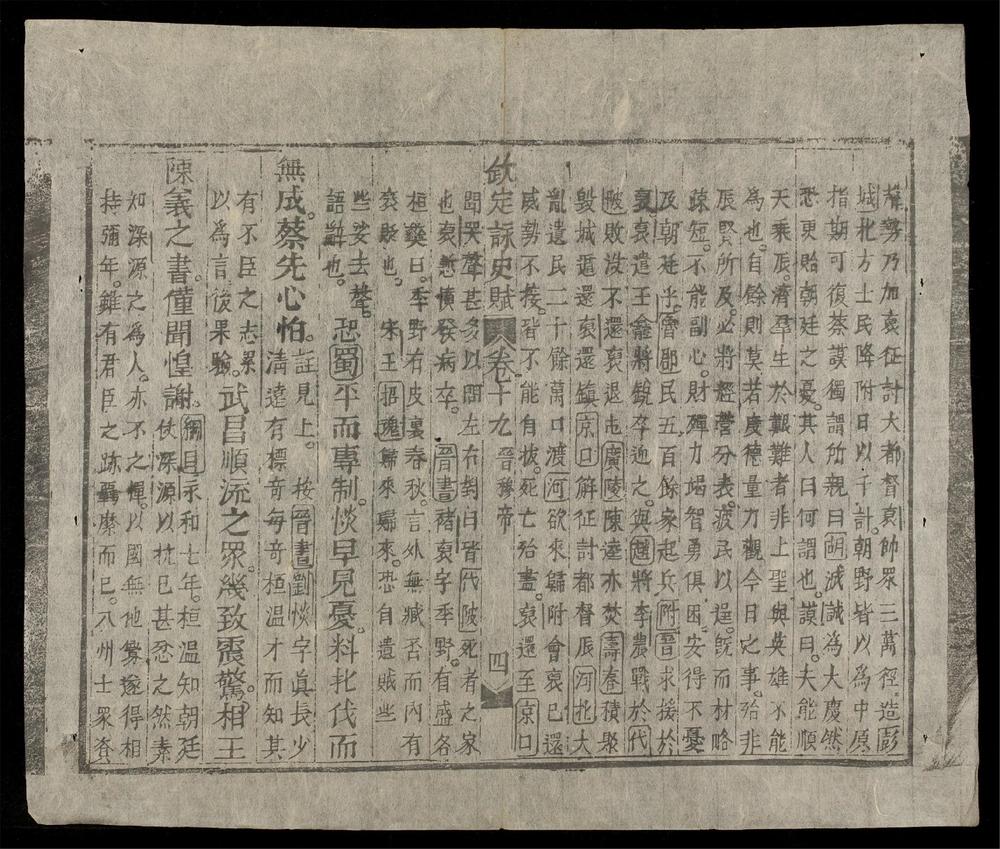 旌勢乃加裒征討大都督裒帥眾三萬徑造彭
城北方士民降附日以千計朝野皆以為中原
指期可復蔡謨獨謂所親曰胡滅誠為大慶然
恐更貽朝廷之憂其人曰何謂也謨曰夫能順
天乘辰濟羣生於艱難者非上聖與英雄不能
為也自餘則莫若度德量力觀今日之事殆非
辰賢所及必將經營分表疲民以逞旣而材略
疎短不能副心財殫力竭智勇俱困安得不憂
及朝廷乎魯郡民五百餘家起兵附晉求接於
裒裒遣王龕將銳卒迎之與趙將李農戰於代
陂敗沒不還裒退屯廣陵陳逵亦焚壽春積聚
毀城遁還裒還鎮京口解征討都督辰河北大
亂遺民二十餘萬口渡河欲來歸附會裒已還
威勢不接皆不能自拔死亡殆盡裒還至京口
欽定詠史賦 卷十九 晉穆帝 四
聞哭聲甚多以問左右對曰皆代陂死者之家
也裒慙憤發病卒 晉書褚裒字季野有盛名
桓彝曰季野有皮裏春秋言外無臧否而內有
褒貶也 宋玉招魂歸來歸來恐自遺賊些
些娑去聲
語辭也 恐蜀平而專制惔早見憂料北伐而
無成蔡先心怕 註見上 按晉書劉惔字眞長少
清遠有標奇每奇桓溫才而知其
有不臣之志累
以為言後果驗 武昌順流之眾幾致震驚相王
陳義之書僅聞惶謝 綱目永和七年桓溫知朝廷
仗深源以抗已甚忿之然素
知深源之為人亦不之憚以國無他釁遂得相
持彌年雖有君臣之跡羈縻而已八州士眾資